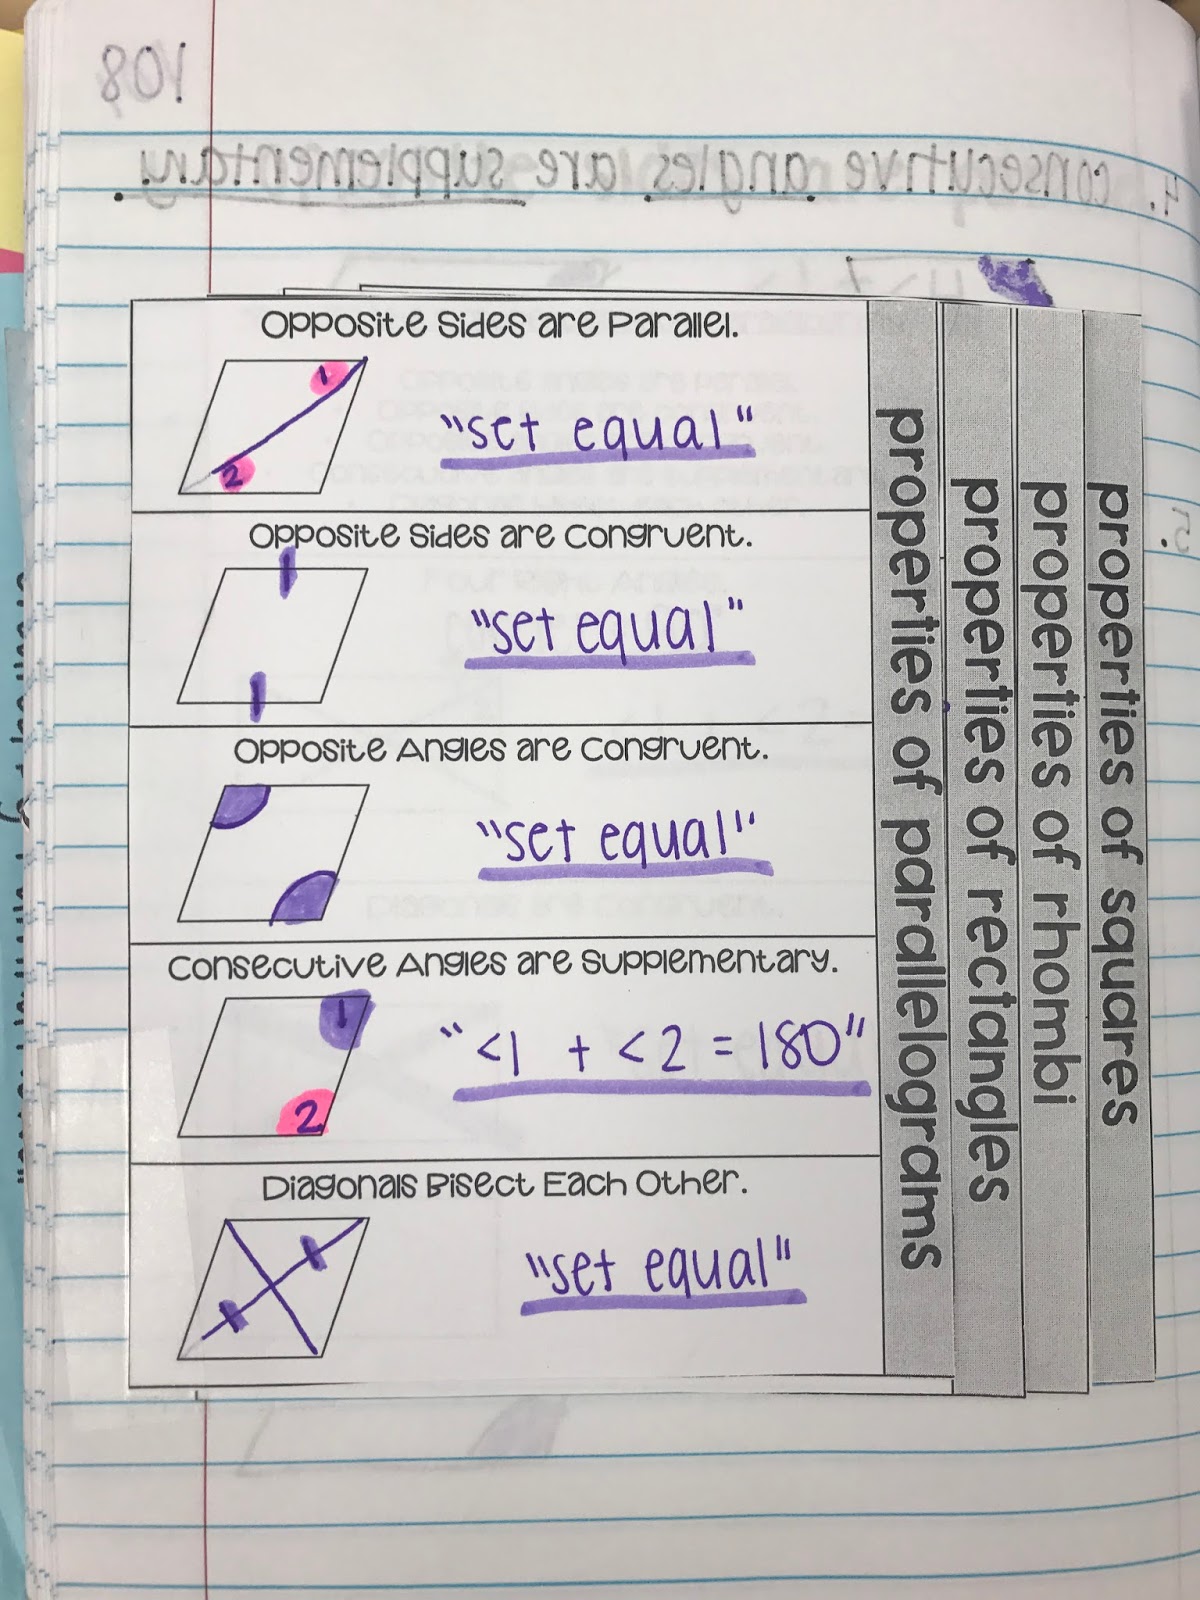 108
4. consecutive angles are supplementary.
Opposite Sides are Parallel.
1
2
"set equal"
Opposite Sides are Congruent.
"set equal"
Opposite Angles are Congruent.
"set equal"
Consecutive Angles are Supplementary.
1
2
"<1 + <2 = 180"
Diagonals Bisect Each Other.
"set equal"
properties of parallelograms
properties of rectangles
properties of rhombi
properties of squares
5.